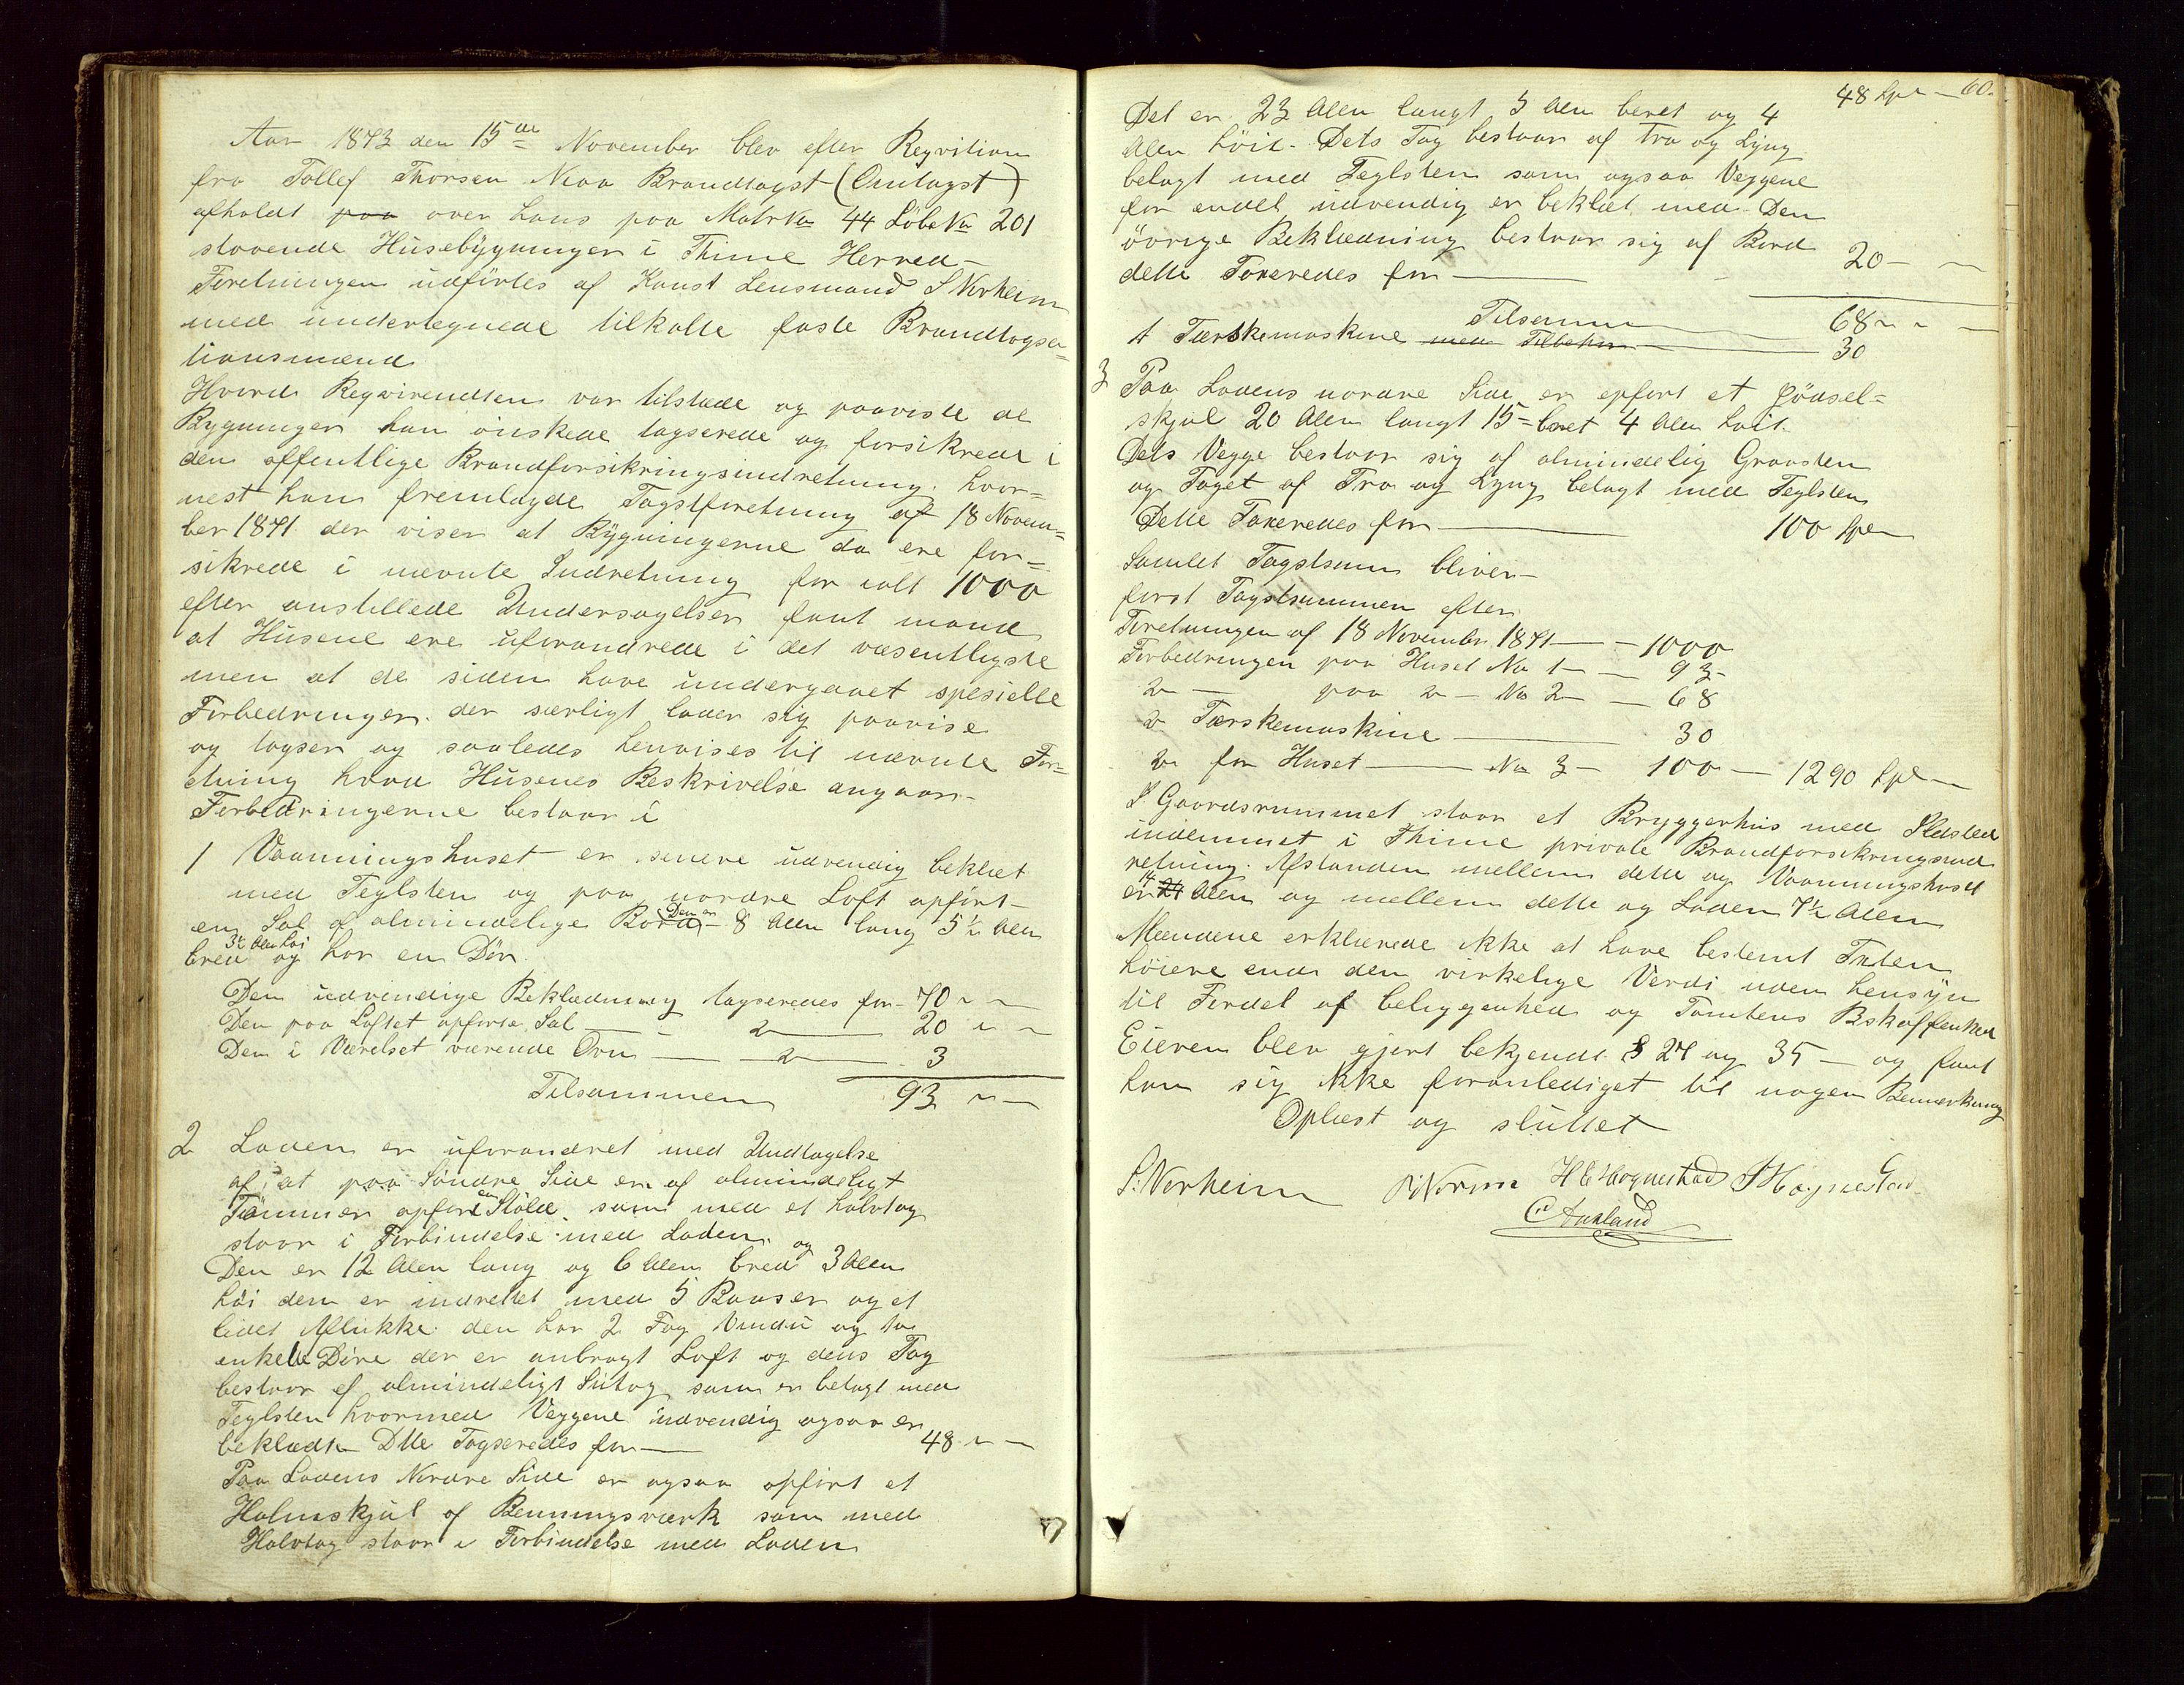 Aar 1873 den 15de November blev efter Reqvition
fra Tollef Thorsen Njaa Brandtagst (Omtagst)
afholdt paa over hans paa MatrNo 44 LöbeNo 201
staaende Husebÿgninger i Thime Herred –
Foretningen udförtes af Konst Lensmand S Norheim
med undertegnede tilkalte faste Brandtagsa=
tionsmænd
Hvord Reqvirendten var tilstæde og paaviste de
Bygninger han önskede tagserede og forsikrede i
den offentlige Brandforsikringsindretning. hvor=
nest han fremlagde Tagstforetning af 18 Novem=
ber 1871 der viser at Bÿgningerne da ere for=
sikrede i nævnte Indretning for ialt 1000
efter anstillede Undersøgelser fant mand
at Husene ere uforandrede i det væsentligste
men at de siden have undergaaet spesielle
Forbedringer. der særligt lader sig paavise
og tagser og saaledes henvises til nævnte For=
etning hvad Husenes Beskrivelse angaar–
Forbedringerne bestaar i
1 Vaaningshuset er senere udvendig beklæt
med Teglsten og paa nordre Loft opfört–
en Sal af almindelige Bord Den er – 8 Alen lang 5½ Alen
bred 3½ Alen höi og har en Dör.
Den udvendige Beklædning tagseredes for – 70 " –
Den paa Loftet opførte Sal – – " – 20 " –
Den i Værelset værende Ovn – – " – 3
Tilsammen 93 " –
2 Laden er uforandret med Undtagelse
af, at paa Söndre Side er af almindeligt
Tömmer opfört en Stöld som med et halvtag
staar i Forbindelse med Laden.
Den er 12 Alen lang og 6 Alen bred og 3 Alen
höi den er indrettet med 5 Baaser og et
lidet Aflukke. den har 2 Fag Vindu og to
enkelte Döre der er anbragt Loft og dens Tag
bestaar af almindeligt Sutag som er belagt med
Teglsten hvormed Veggene udvendig ogsaa er
beklædt – Dtte Tagseredes for – 48 " –
Paa Ladens Nordre Side er ogsaa opfört et
Halmskjul af Benningsværk som med
Halvtag staar i Forbindelse med Laden
48 Spd – 60.
Det er 23 Alen langt 5 Alen beret og 4
Alen höit. Dets Tag bestaar af Træ og Lÿng
belagt med Teglsten som ogsaa Veggene
for endel udvendig er beklæt med. Den
övrige Beklædning bestaar sig af Bord
dette Taxeredes for – 20 – –
Tilsammen 68 " " –
1 Tærskemaskine med Tilbehør – 30
3 Paa Ladens nordre Side er opført et Gjödsel=
skjul 20 Alen langt 15 = beret 4 Alen höit.
Dets Vegge bestaar sig af almindelig Graasten
og Taget af Træ og Lyng belagt med Teglsten
Dette Taxeredes for – 100 Spd
Samlet Tagstsum bliver –
først Tagstsummen efter
Foretningen af 18 November 1871 – – 1000
Forbedringen paa Huset No 1 – – 93 –
" – paa " – No 2 – – 68
" Tærskemaskine – 30
" for Huset – No 3 – 100 – 1290 Spd –
I Gaardsrummet staar et Bryggerhus med Ildsted
indemmet i Thime private Brandforsikringsind
retning. Afstanden mellem dette og Vaaningshuset
er 14 21 Alen og mellem dette og Laden 7½ Alen
Mændene erklærede ikke at have bestemt Taxten
höiere end den virkelige Verdi uden hensÿn
til Fordel af beliggenhed og Tomtens Bskaffenhed
Eieren blev gjort bekjendt § 27 og 35 – og fant
han sig ikke foranlediget til nogen Bemerkning
Oplæst og sluttet
S. Norheim H E Hognestad J Hognestad
C Auxland